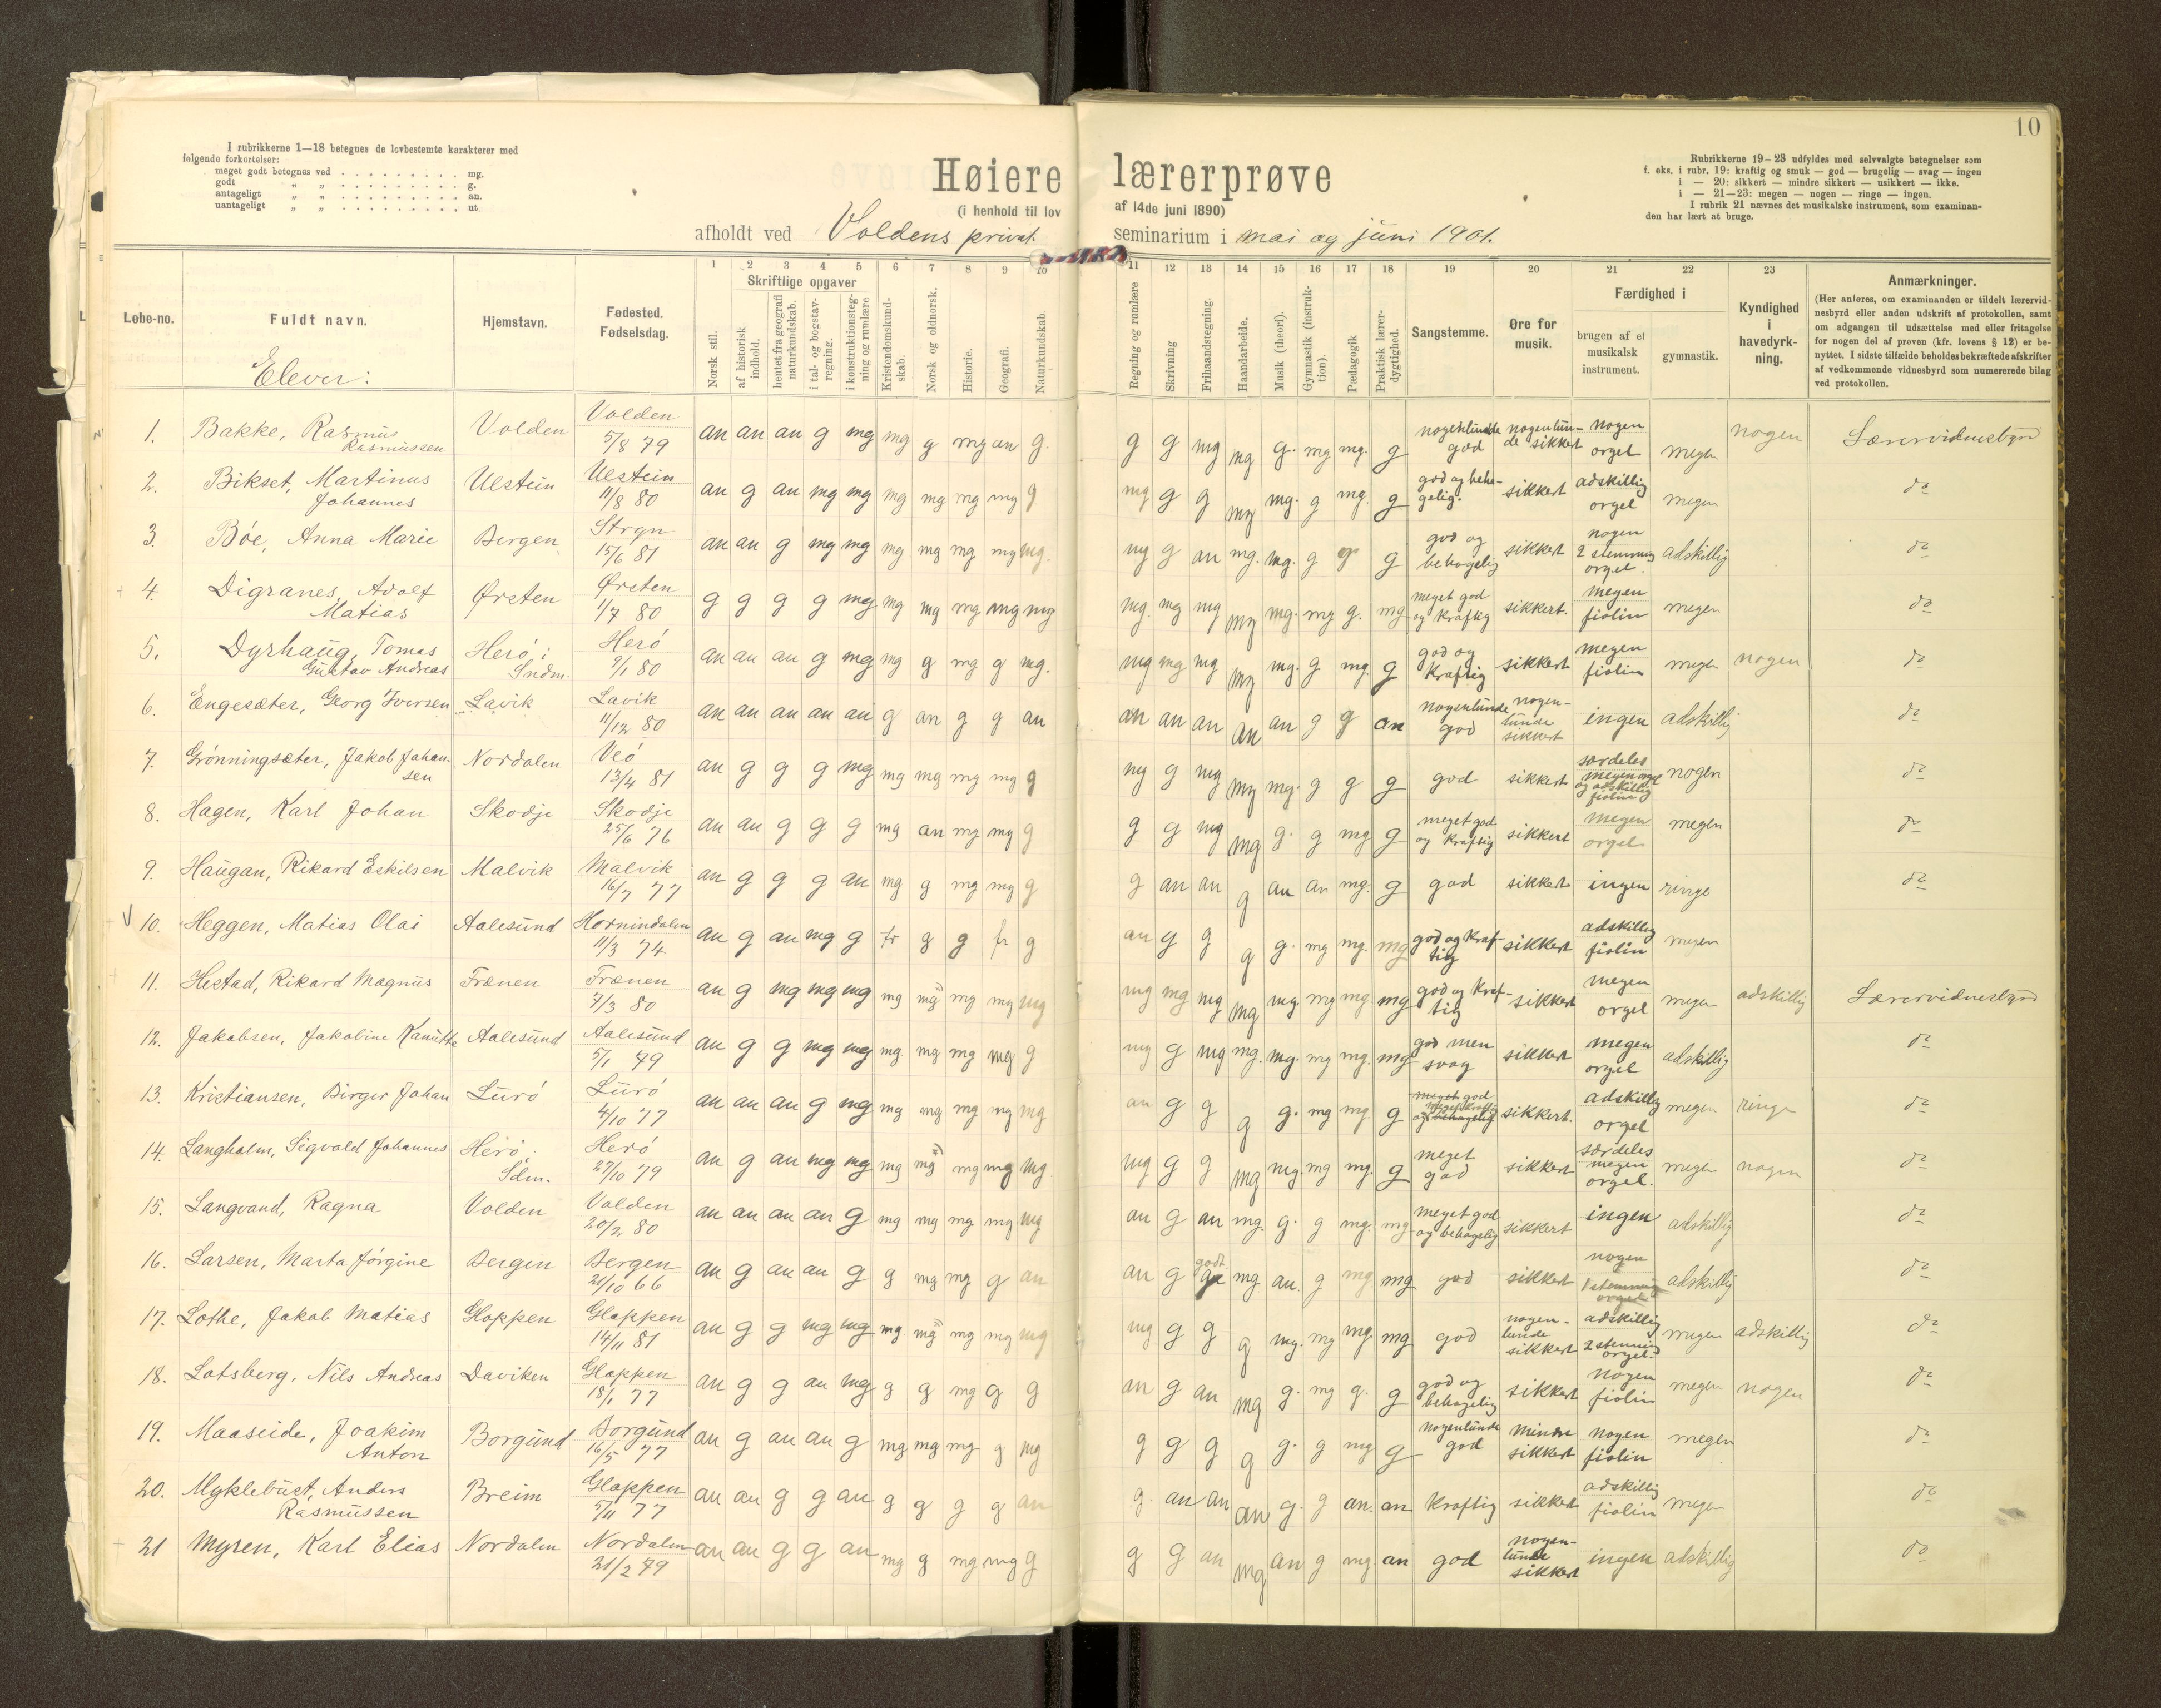 10
I rubrikkerne 1—18 betegnes de lovbestemte karakterer med
følgende forkortelser:
meget godt betegnes ved . . . . . . . . . . mg.
godt „ „ . . . . . . . . . . g.
antageligt „ „ . . . . . . . . . . an.
uantageligt „ „ . . . . . . . . . . ut.
Høiere lærerprøve
(i henhold til lov af 14de juni 1890)
afholdt ved Voldens privat. seminarium i mai og juni 1901.
Rubrikkerne 19—23 udfyldes med selvvalgte betegnelser som
f. eks. i rubr. 19: kraftig og smuk — god — brugelig — svag — ingen
i — 20: sikkert — mindre sikkert — usikkert — ikke.
i — 21—23: megen — nogen — ringe — ingen.
I rubrik 21 nævnes det musikalske instrument, som examinan-
den har lært at bruge.
Løbe-no. Fuldt navn. Hjemstavn. Fødested. Fødselsdag.
1 Norsk stil.
Skriftlige opgaver
2 af historisk indhold.
3 hentet fra geografi naturkundskab.
4 i tal- og bogstav-regning.
5 i konstruktionsteg-ning og rumlære
6 Kristendomskund-skab.
7 Norsk og oldnorsk.
8 Historie.
9 Geografi.
10 Naturkundskab.
11 Regning og rumlære
12 Skrivning
13 Frihaandstegning.
14 Haandarbeide.
15 Musik (theori).
16 Gymnastik (instruk-tion).
17 Pædagogik
18 Praktisk lærer-dygtighed.
19 Sangstemme.
20 Øre for musik.
Færdighed i
21 brugen af et musikalsk instrument.
22 gymnastik.
23 Kyndighed i havedyrk-ning.
Anmærkninger.
(Her anføres, om examinanden er tildelt lærervid-
nesbyrd eller anden udskrift af protokollen, samt
om adgangen til udsættelse med eller fritagelse
for nogen del af prøven (kfr. lovens § 12) er be-
nyttet. I sidste tilfælde beholdes bekræftede afskrifter
af vedkommende vidnesbyrd som numererede bilag
ved protokollen.
Elever:
1. Bakke, Rasmus Rasmussen Volden Volden 5/8 79 an an an g mg mg g mg an g. g g mg mg g. mg mg. g nogenlunde god nogenlun-de sikkert nogen orgel megen nogen Lærervidnesbyrd
2. Bikset, Martinus Johannes Ulstein Ulstein 11/8 80 an g an mg mg mg mg mg mg g mg g g mg mg. g mg. g god og beha-gelig. sikkert adskillig orgel megen do
3. Bóe, Anna Marie Bergen Stryn 15/6 81 an an g mg mg mg mg mg mg mg. mg g an mg. mg. g g g god og behagelig sikkert nogen 2 stemmig orgel. adskillig do
4. Digranes, Adolf Matias Ørsten Ørsten 1/7 80 g g g g mg mg mg mg mg mg mg. mg mg mg mg. mg g. mg meget god og kraftig sikkert. megen fiolin megen do
5. Dyrhaug, Tomas Gustav Andreas Heró i Sndm. Heró 9/1 80 an an an g mg mg g mg g mg. mg mg mg mg mg. g mg. g god og kraftig sikkert megen fiolin megen nogen do
6. Engesæter, Georg Iversen Lavik Lavik 11/12 80 an an an an an g an g g an an an an an an g g an nogenlunde god nogen-lunde sikkert ingen adskillig do
7. Grónningsæter, Jakob Johan-sen Nordalen Veó 13/4 81 an g g g mg mg mg mg mg g mg g mg mg mg. g g g god sikkert særdeles megen orgel og adskillig fiolin nogen do
8. Hagen, Karl Johan Skodje Skodje 25/6 76 an an g g g mg an mg mg g g g mg mg g. g mg g meget god og kraftig sikkert megen orgel megen do
9. Haugan, Rikard Eskilsen Malvik Malvik 16/7 77 an g g g an mg g mg mg g g an an g an an mg. g god sikkert ingen ringe do
V 10. Heggen, Matias Olai Aalesund Hornindalen 11/3 74 an g an mg g fr g g fr g an g g g g. mg mg. mg god og kraf-tig sikkert adskillig fiolin megen
11. Hestad, Rikard Magnus Frænen Frænen 7/3 80 an g mg mg mg mg mg mg mg mg mg mg mg mg mg mg mg mg god og kraf-tig sikkert megen orgel megen adskillig Lærervidnesbyrd
12. Jakobsen, Jakobine Kanutte Aalesund Aalesund 5/1 79 an g g mg mg mg. mg mg mg g mg g mg mg. mg. mg mg. mg god men svag sikkert megen orgel adskillig do
13. Kristiansen, Birger Johan Luró Luró 4/10 77 an an an g mg mg mg mg mg mg an g g g g. mg mg. g meget god meget kraftig og behagelig sikkert. adskillig orgel megen ringe do
14. Langholm, Sigvald Johannes Heró i Sdm. Heró 27/10 79 an g an mg mg mg mg mg mg mg. mg g g mg mg. mg mg. g meget god sikkert særdeles megen orgel. megen nogen do
15. Langvand, Ragna Volden Volden 20/2 80 an an an an g mg mg mg mg mg an g an mg. g. g mg. mg meget god og behagelig sikkert ingen adskillig do
16. Larsen, Marta Jórgine Bergen Bergen 21/10 66 an g an an g g mg mg g an an g godt mg. an. g mg mg god sikkert nogen 1 stemmig orgel adskillig do
17. Lothe, Jakob Matias Gloppen Gloppen 14/11 81 an g g mg mg mg mg mg mg mg mg g g g mg. mg mg mg god nogen-lunde sikkert adskillig 2 stemmig orgel. megen adskillig do
18. Lotsberg, Nils Andreas Daviken Gloppen 18/1 77 an g g an mg g g mg g g an g an mg g. mg g. g god og behagelig sikkert nogen fiolin megen nogen do
19. Maaseide, Joakim Anton Borgund Borgund 16/5 77 an g an an g mg mg mg g mg g g g g g. g mg g nogenlunde god mindre sikkert nogen fiolin megen do
20. Myklebust, Anders Rasmussen Breim Gloppen 5/11 77 an an g g an g g g g an g. an an an g. g an. an kraftig sikkert adskillig fiolin megen do
21 Myren, Karl Elias Nordalen Nordalen 21/2 79 an an g g an mg g mg mg g g g an mg an g mg. an god nogen-lunde sikkert ingen adskillig do